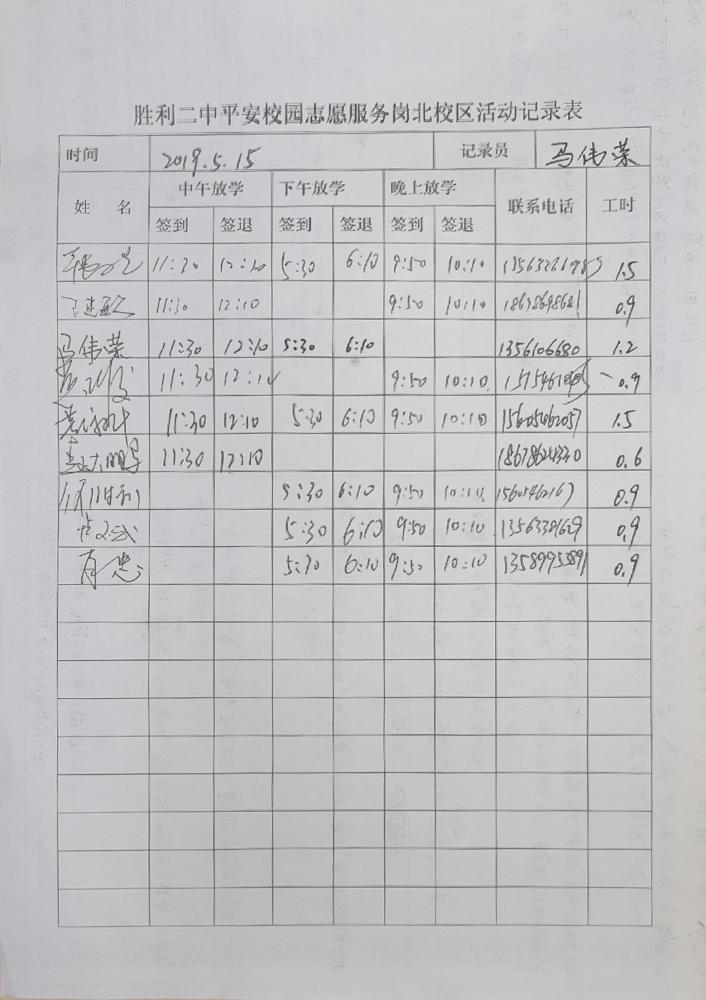 胜利二中平安校园志愿服务岗北校区活动记录表
时间 2019.5.15 记录员 马伟荣
姓 名 中午放学 下午放学 晚上放学 联系电话 工时
签到 签退 签到 签退 签到 签退
11:30 12:10 5:30 6:10 9:50 10:10 1.5
11:30 12:10 9:50 10:10 18678698681 0.9
马伟荣 11:30 12:10 5:30 6:10 1356106680 1.2
11:30 12:10 9:50 10:10 0.9
11:30 12:10 5:30 6:10 9:50 10:10 15605462057 1.5
11:30 12:10 18678624330 0.6
5:30 6:10 9:50 10:10 0.9
5:30 6:10 9:50 10:10 0.9
5:30 6:10 9:50 10:10 13589953891 0.9